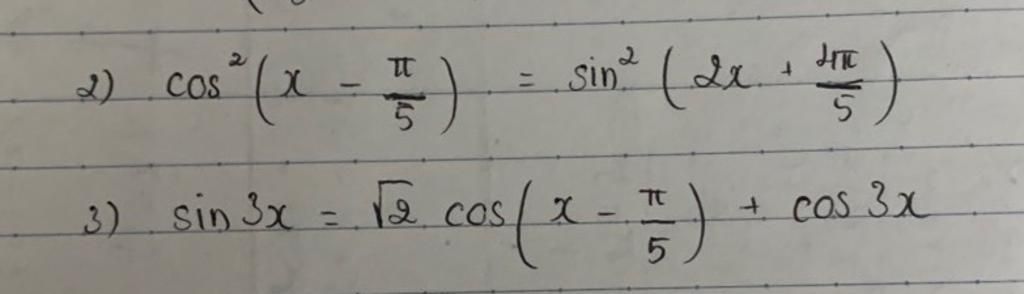 2) cos²(x - π/5) = sin²(2x + 4π/5)
3) sin 3x = √2 cos(x - π/5) + cos 3x